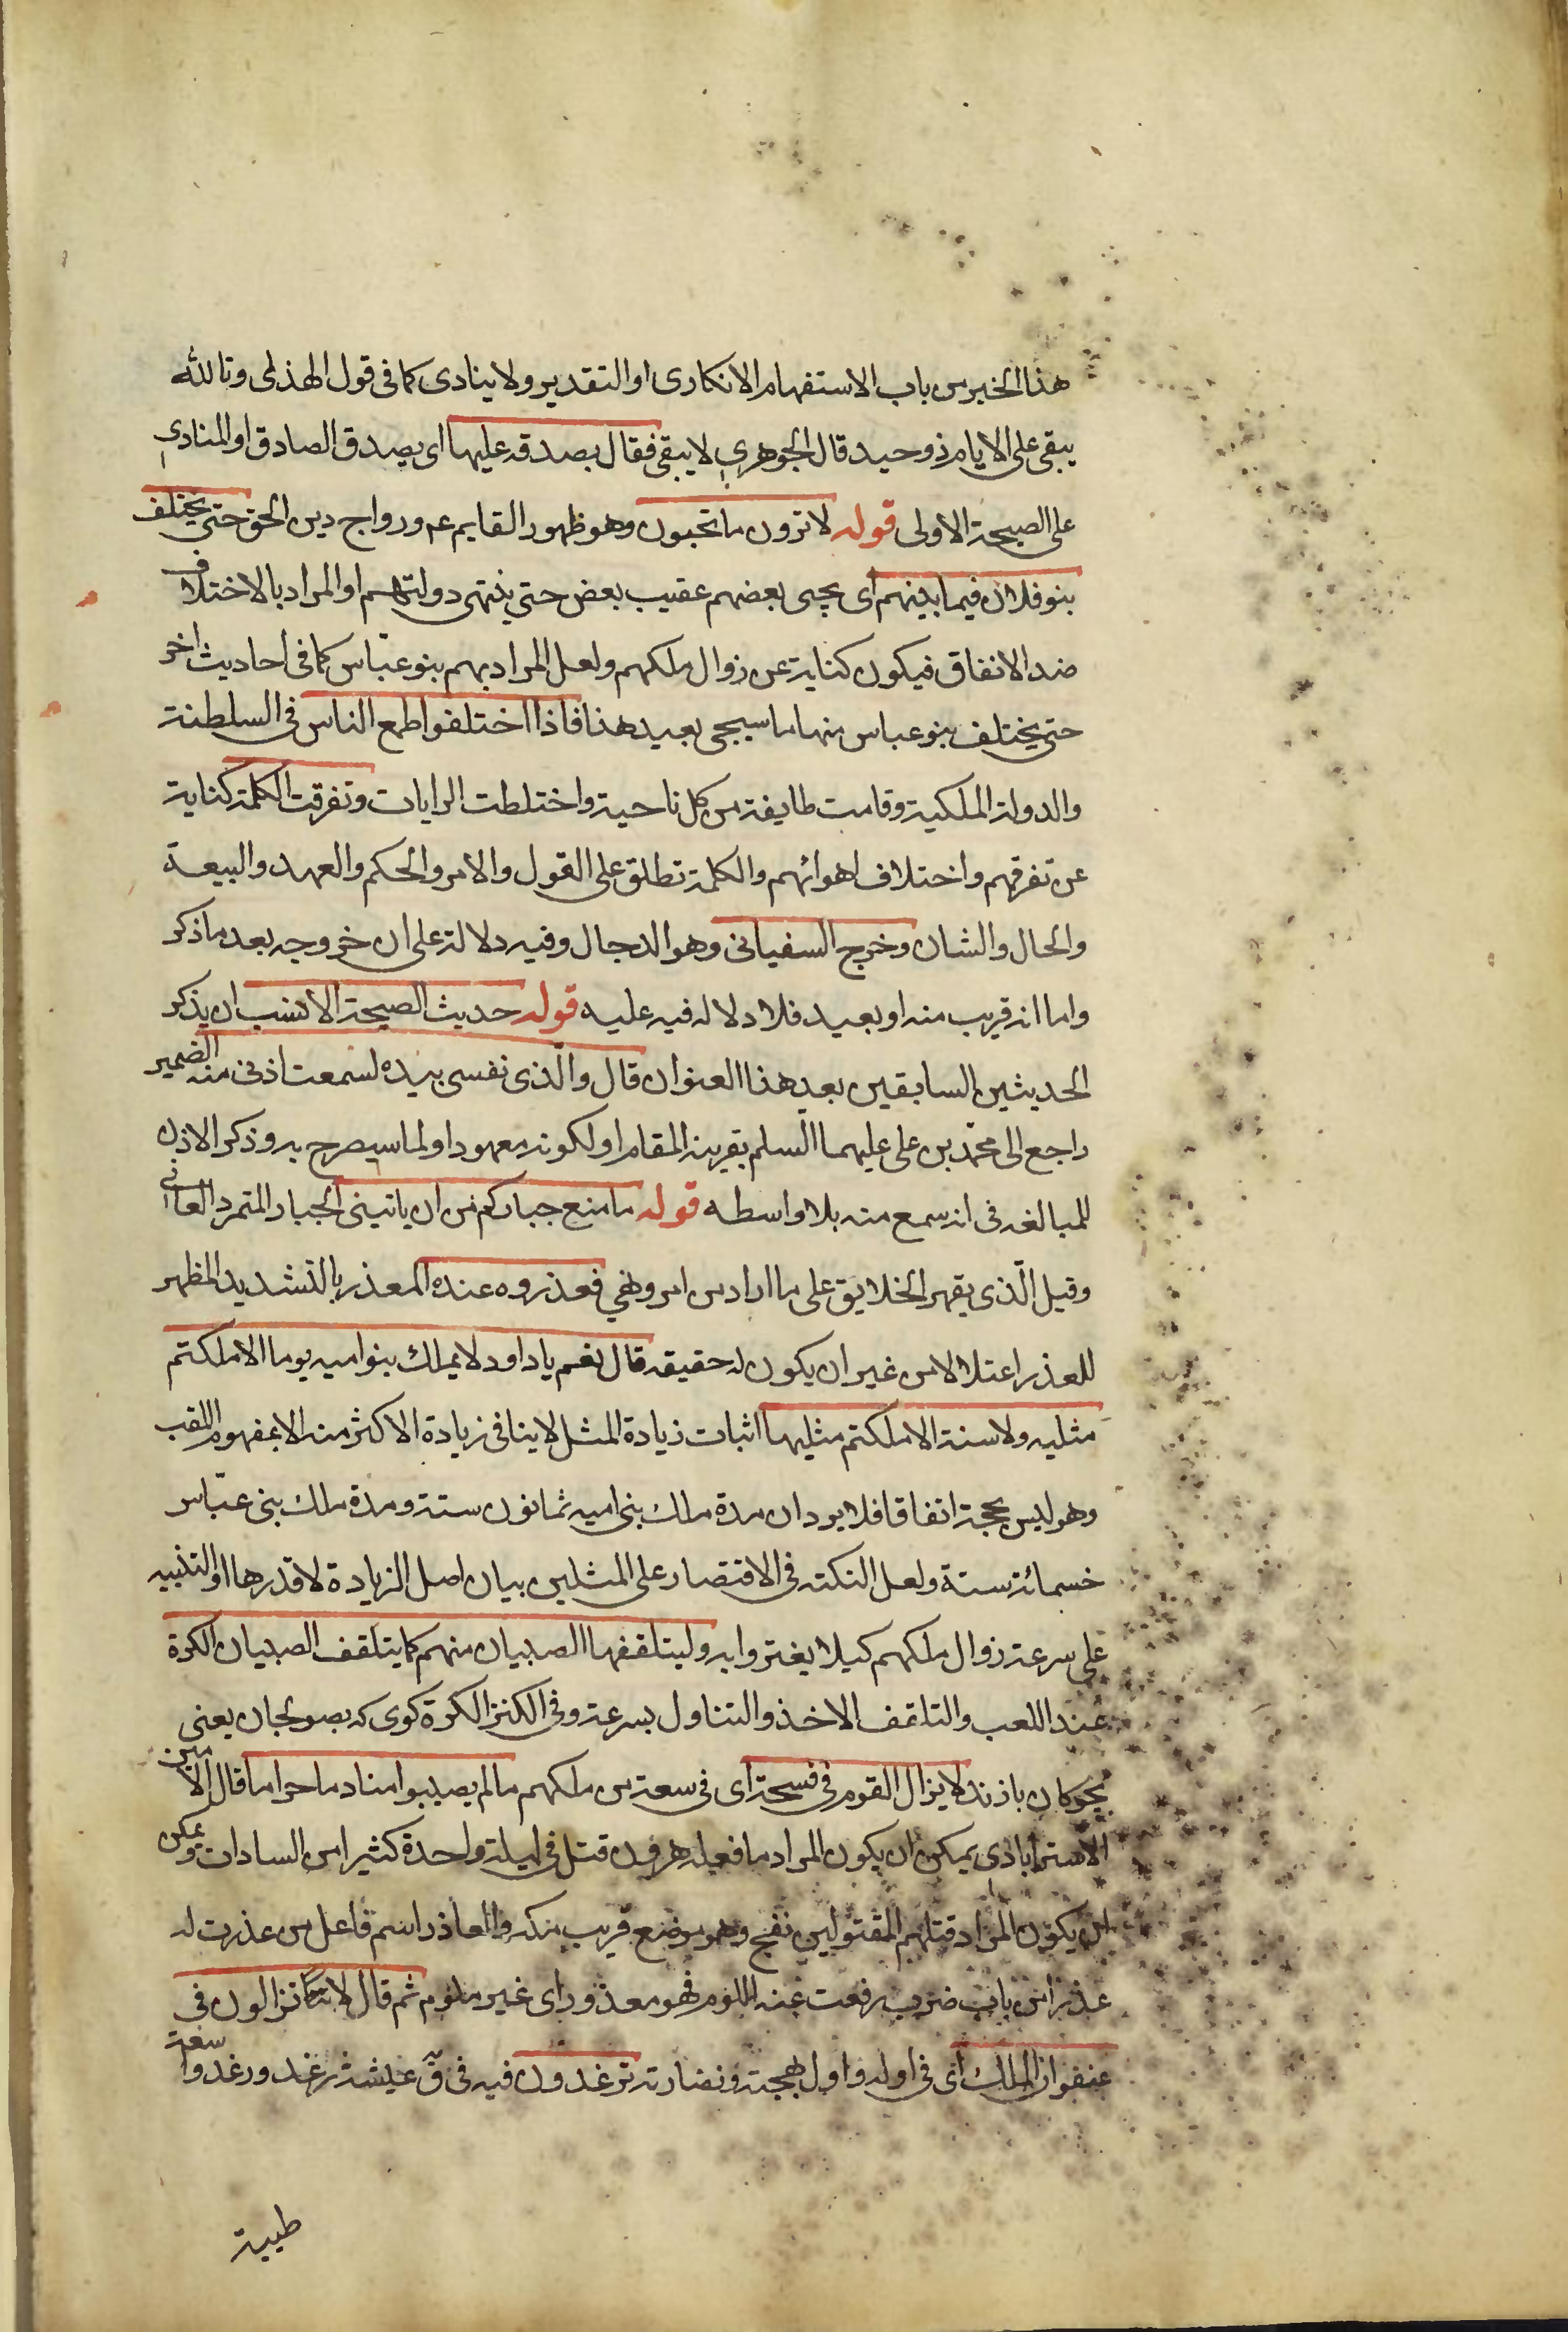 هذا الخبر من باب الاستفهام الانكارى او التقدير ولا ينادى كما فى قول الهذلى وتالله
يبقى على الايام ذو حيد قال الجوهرى لا يبقى فقال بصدقه عليها اى يصدق الصادق او المنادى
على الصيحة الاولى قوله لا ترون ما تحبون وهو ظهور القايم عم ورواج دين الحق حتى يختلف
بنو فلان فيما بينهم اى يجيى بعضهم عقيب بعض حتى ينتهى دولتهم او المراد بالاختلاف
ضد الاتفاق فيكون كناية عن زوال ملكهم ولعل المراد بهم بنو عبّاس كما فى احاديث اخر
حتى يختلف بنو عباس منها ما سيجى بعيد هذا فاذا اختلفوا طمع الناس فى السلطنة
والدولة الملكية وقامت طايفة من كل ناحية واختلطت الرايات وتفرقت الكلمة كناية
عن تفرقهم واختلاف اهوائهم والكلمة تطلق على القول والامر والحكم والعهد والبيعة
والحال والشان وخرج السفيانى وهو الدجال وفيه دلالة على ان خروجه بعد ما ذكر
واما انه قريب منه او بعيد فلا دلاله فيه عليه قوله حديث الصيحة الانسب ان يذكر
الحديثين السابقين بعد هذا العنوان قال والّذى نفسى بيده لسمعت اذنى منه الضمير
راجع الى محمّد بن على عليهما السلم بقرينة المقام او لكونه معهودا او لما سيصرح به وذكر الاذن
للمبالغه فى انه سمع منه بلا واسطه قوله ما منع جباركم من ان ياتينى الجبار المتمرد العاتى
وقيل الّذى يقهر الخلايق على ما اراد من امر ونهي فعذروه عنده المعذر بالتشديد المظهر
للعذر اعتلالا من غير ان يكون له حقيقه قال نعم يا داود لا يملك بنو اميه يوما الا ملكتم
مثليه ولا سنة الا ملكتم مثليها اثبات زيادة المثل لا ينافى زيادة الاكثر منه الا بمفهوم اللقب
وهو ليس بحجة اتفاقا فلا يرد ان مدة ملك بنى اميه ثمانون سنة ومدة ملك بنى عبّاس
خسمائة سنة ولعل النكته فى الاقتصار على المثلين بيان اصل الزيادة لا قدرها او التنبيه
على سرعة زوال ملكهم كيلا يغتروا به وليتلقفها الصبيان منهم كما يتلقف الصبيان الكرة
عند اللعب والتلقف الاخذ والتناول بسرعة وفى الكنز الكرة كوى كه بصولجان يعنى
بچوكان بازند لا يزال القوم فى فسحة اى فى سعة من ملكهم ما لم يصيبوا منا دما حراما قال الامين
الاسترابادى يمكن ان يكون المراد ما فعله هرون قتل فى ليلة واحدة كثيرا من السادات ويمكن
ان يكون المراد قتلهم المقتولين بفخ وهو موضع قريب مكه والعاذر اسم فاعل من عذرت له
عذرا من باب ضرب رفعت عنه اللوم فهو معذور اى غير ملوم ثم قال لا تزالون فى
عنفوان الملك اى فى اوله واول بهجته ونضارته ترغدون فيه فى قٓ عيشة رغد ورغد واسعة
طيبة